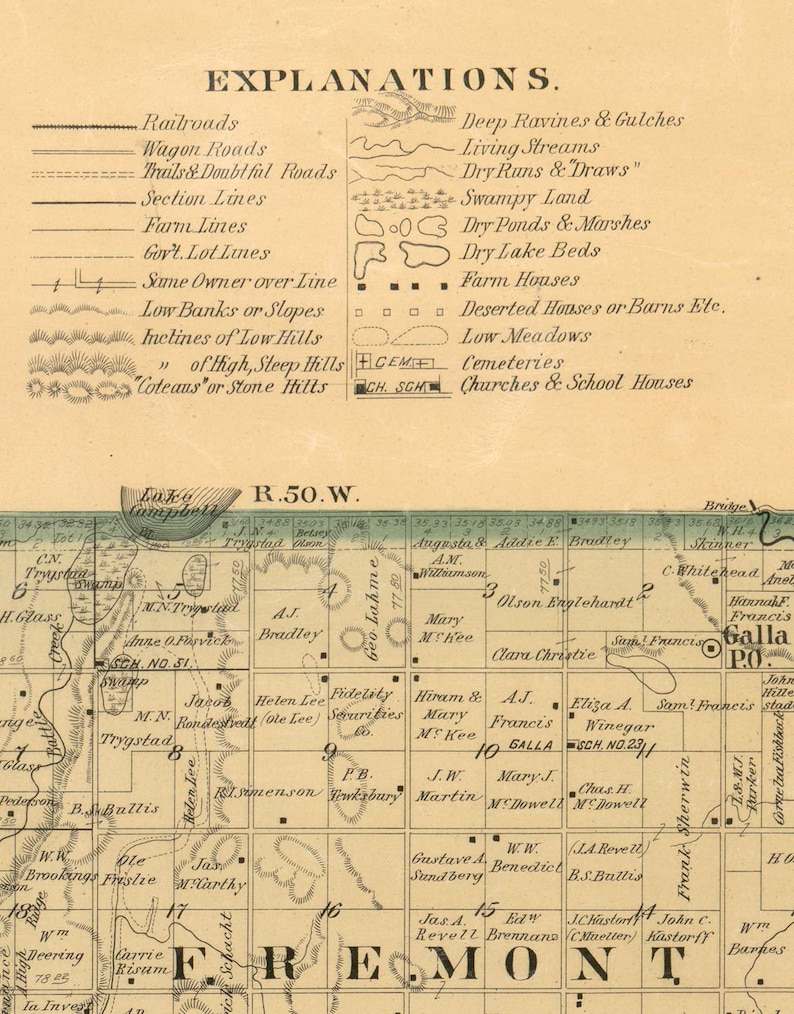 EXPLANATIONS.
Railroads
Wagon Roads
Trails & Doubtful Roads
Section Lines
Farm Lines
Gov't. Lot Lines
Same Owner over Line
Low Banks or Slopes
Inclines of Low Hills
" of High, Steep Hills
"Coteaus" or Stone Hills
Deep Ravines & Gulches
Living Streams
Dry Runs & "Draws"
Swampy Land
Dry Ponds & Marshes
Dry Lake Beds
Farm Houses
Deserted Houses or Barns Etc.
Low Meadows
CEM.
Cemeteries
CH. SCH
Churches & School Houses
Lake
Campbell
R. 50. W.
Bridge
34.88 35.03
35.33 35.18 35.03 34.88
Lot 1
C.N.
Trygstad
Swamp
J.N.
Trygstad
Betsey
Olson
Augusta &
Addie E.
Bradley
W.H.
Skinner
6
5
4
3
2
H. Glass
M.N. Trygstad
77.80
A.J.
Bradley
Geo. Lahme
77.80
A.M.
Williamson
77.80
Olson Englehardt
C. Whitehead
Hannah F.
Francis
Mary
McKee
Anne O. Fosvick
SCH. NO. 51.
Clara Christie
Saml. Francis
Galla
P.O.
Creek
Battle
Swamp
Jacob
Rondestvedt
M.N.
Trygstad
Helen Lee
(Ole Lee)
Fidelity
Securities
Co.
Hiram &
Mary
McKee
A.J.
Francis
Eliza A.
Winegar
Saml. Francis
John
7
8
9
10
11
GALLA
SCH. NO. 23
Glass
Pederson
B.S. Bullis
Helen Lee
R.I. Simenson
P.B.
Tewksbury
J.W.
Martin
Mary J.
McDowell
Chas. H.
McDowell
Frank Sherwin
I. & M.J.
Parker
Cornelia Fishback
W.W.
Brookings
Ole
Frislie
Jas.
McCarthy
Gustave A.
Sundberg
W.W.
Benedict
(J.A. Revell)
B.S. Bullis
18
17
16
15
14
A High
Ridge
Wm
Deering
78 22
Carrie
Risum
Schacht
Jas. A.
Revell
Edw
Brennan
J.C. Kastorff
(C Mueller)
John C.
Kastorff
Wm
Barnes
FREMONT
Ia Inves